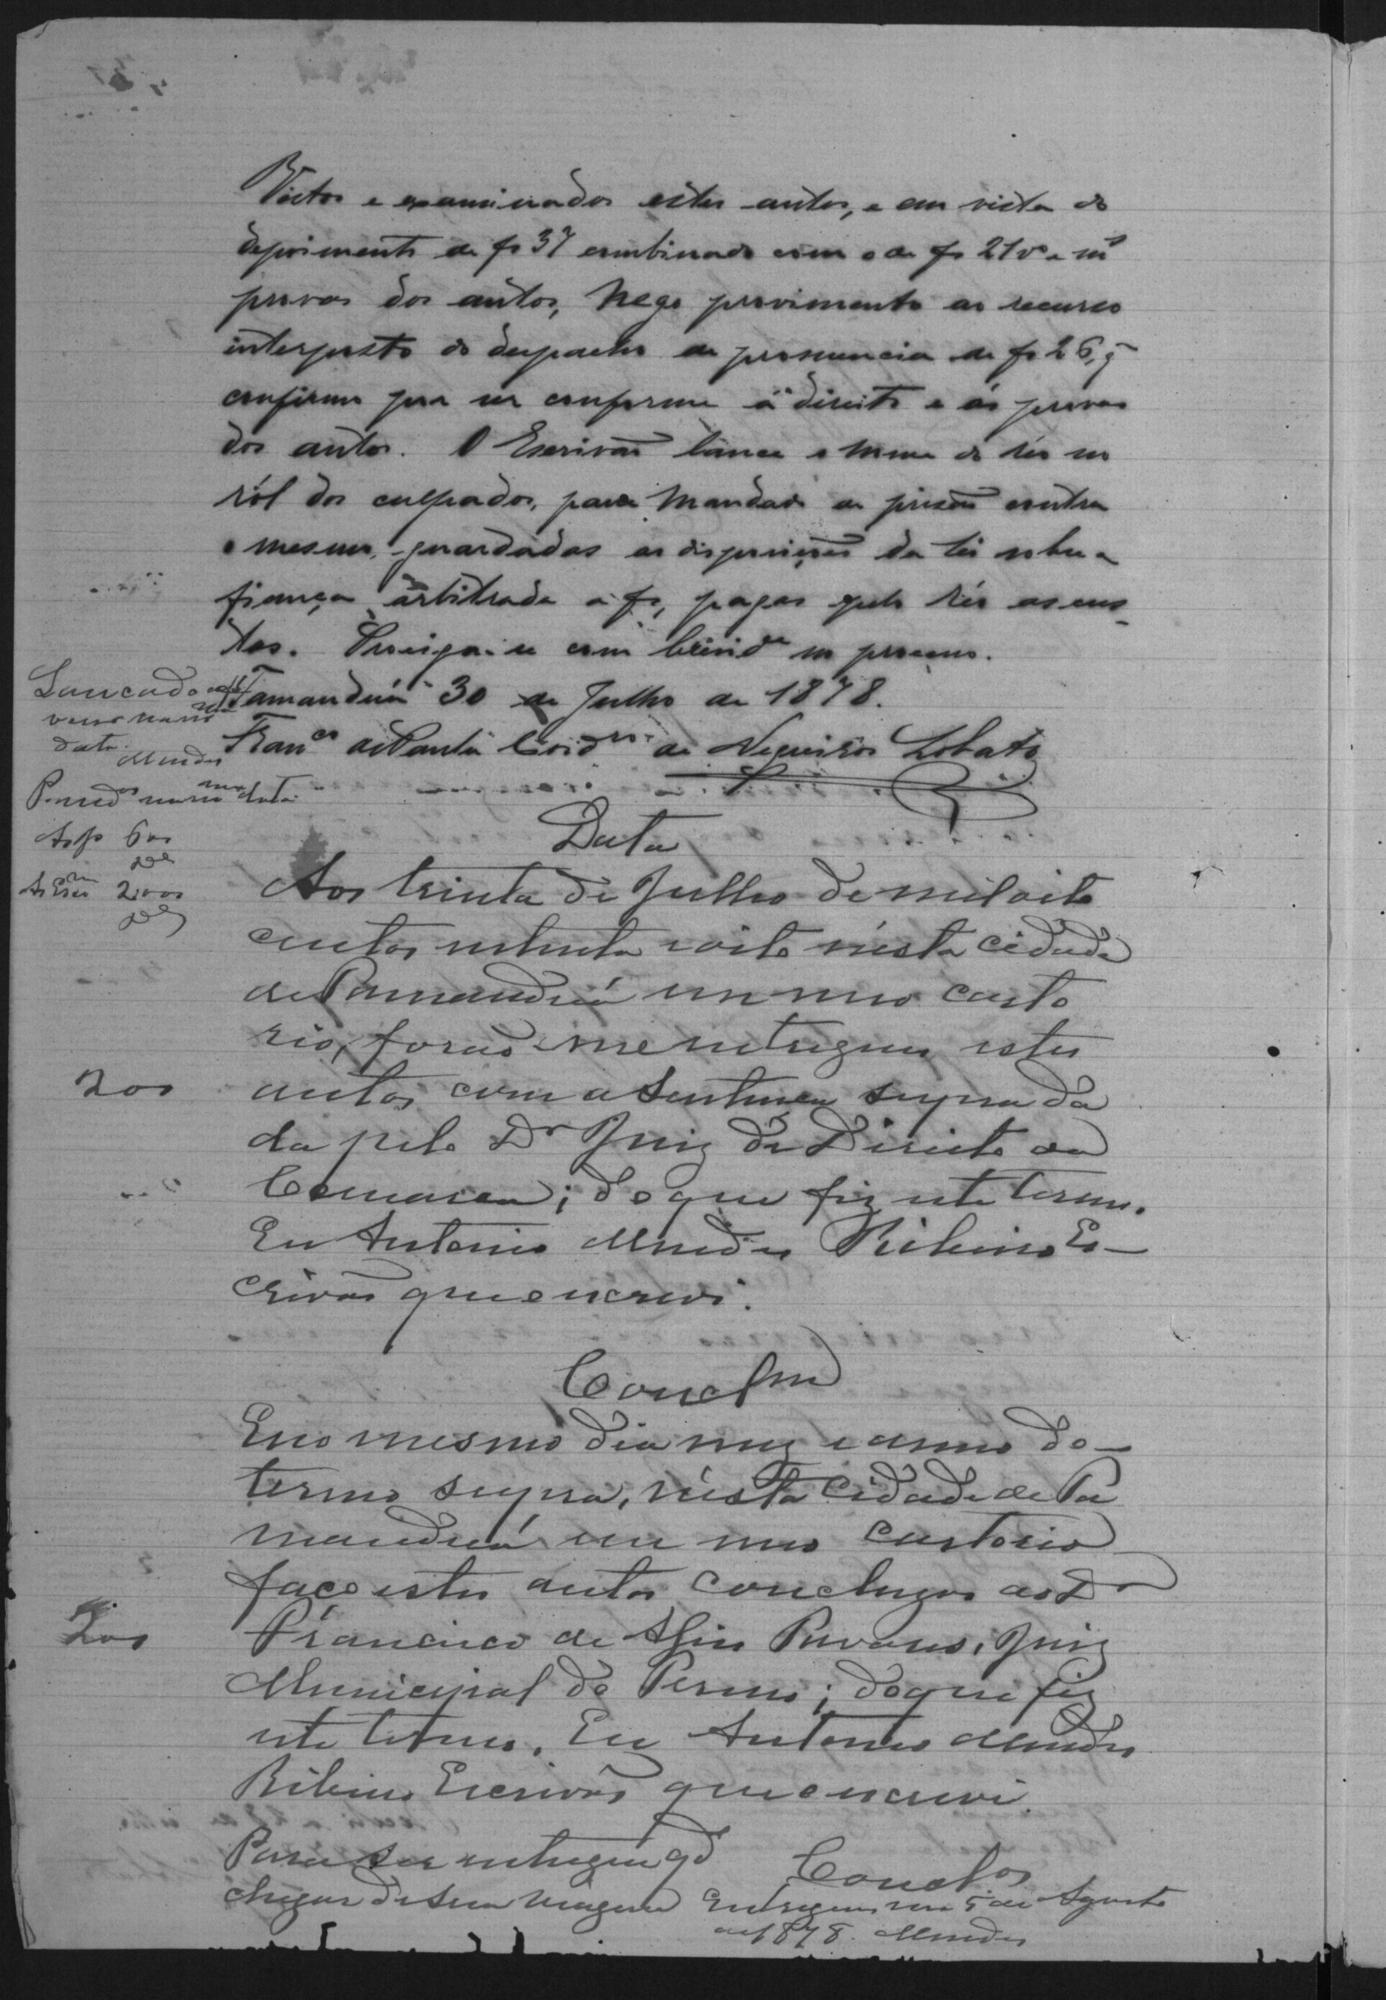 Vistos e examinados estes autos, e em vista do
depoimento de fs 37 combinado com o de fs 21 vº e mˢ
provas dos autos, Nego provimento ao recurso
interposto do despacho de pronuncia de fs 26, q̃
confirmo por ser conforme á direito e ás provas
dos autos. O Escrivaõ lance o nome do réo no
ról dos culpados, passe Mandado de prisaõ contra
o mesmo, guardadas as disposições da lei sobre a
fiança arbitrada a fs, pagas pelo réo as cus-
tas. Prosiga-se com brevidᵉ no processo.
Tamanduá 30 de Julho de 1878.
Franᶜᵒ de Paula Cord.ʳᵒ de Negreiros Lobato
Lancado
verso
data
Mendes
data
600
2000
Data
Aos trinta de Julho de mil oito
centos setenta e oito n'esta cidade
de Tamanduá em meu carto
rio, foraõ me entregues estes
200
autos com a Sentença supra da
da pelo Dʳ Juiz de Direito da
Comarca; do que fiz este termo.
Eu Antonio Mendes Ribeiro Es-
crivaõ que o escrevi.
Conclᵐ
E no mesmo dia mez e anno do
termo supra, n'esta Cidade de Ta
manduá em meu Cartorio
faço estes autos concluzos ao Dʳ
200
Francisco de Assis Juiz
Municipal do Termo; do que fiz
este termo. Eu Antonio Mendes
Ribeiro Escrivaõ que o escrevi
Para ser entregue qdº
chegar de sua viagem
Conclos
Entregues em 5 de Agosto
de 1878. Mendes